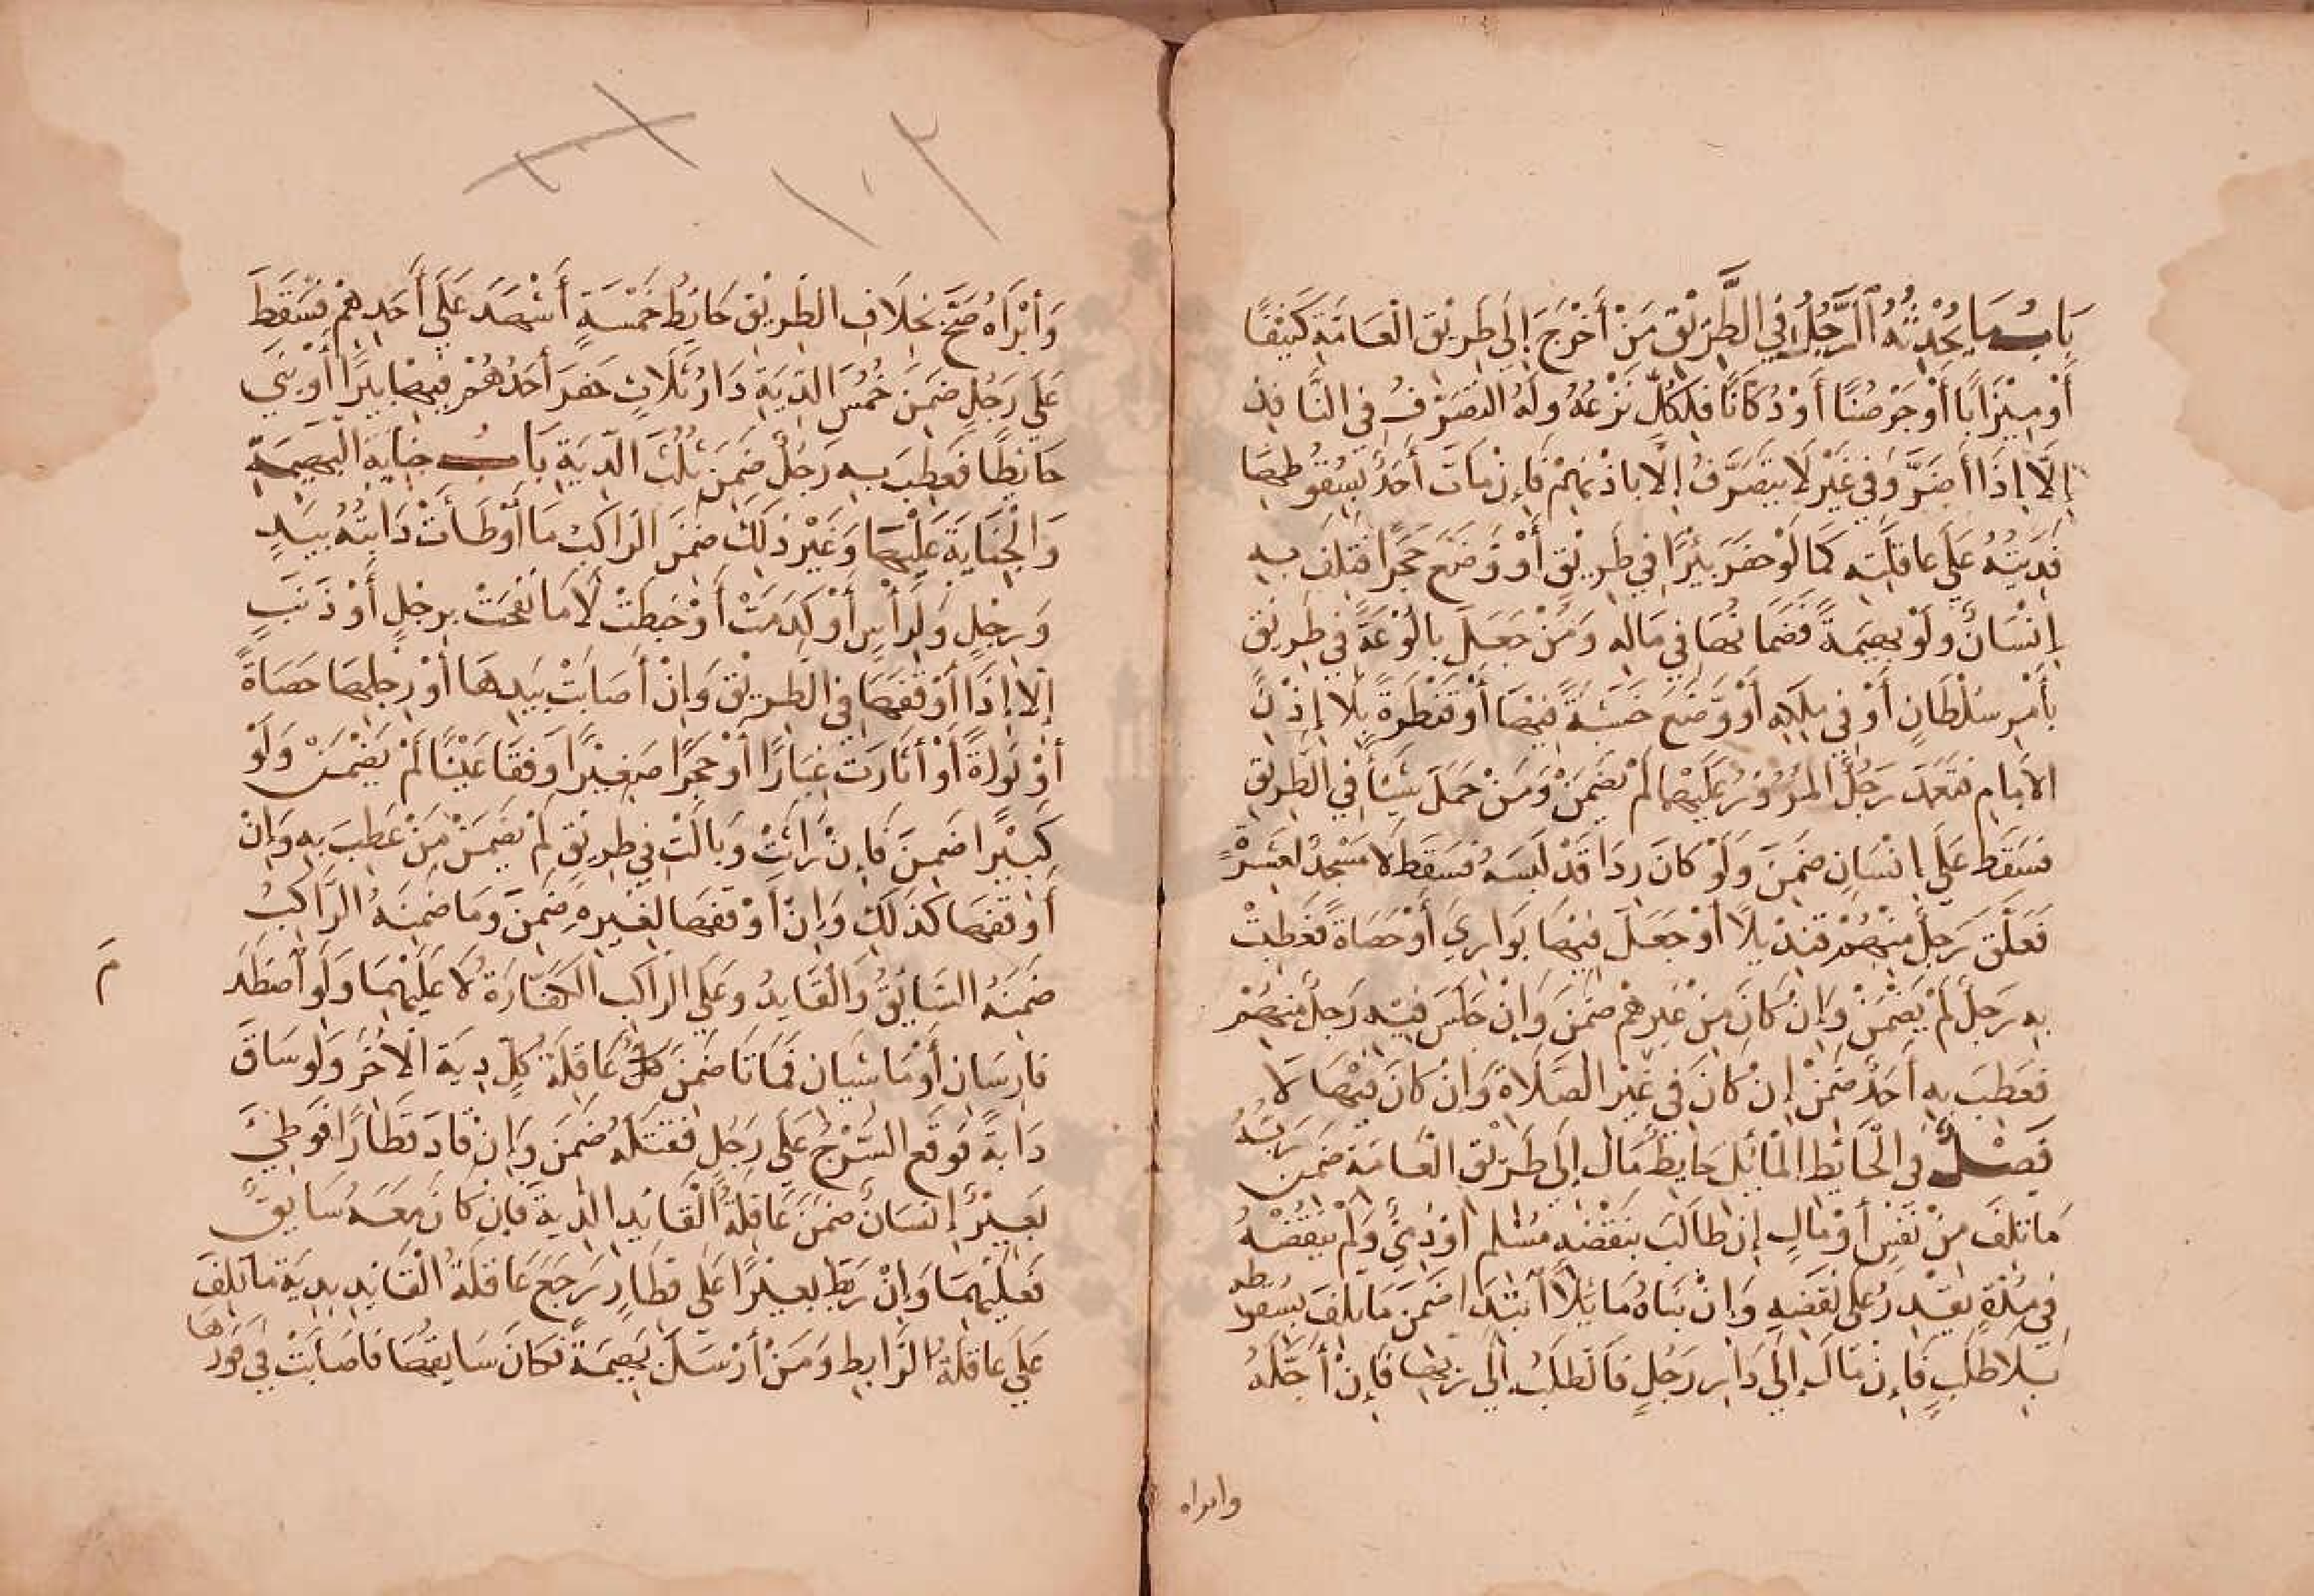 بَابُ مَا يُحْدِثُهُ الرَّجُلُ فِي الطَّرِيْقِ مَنْ أَخْرَجَ إِلَى طَرِيْقِ الْعَامَّةِ كَنِيْفًا
أَوْ مِيْزَابًا أَوْ جَرْصُنًا أَوْ دُكَّانًا فَلِكُلٍّ نَزْعُهُ وَلَهُ التَّصَرُّفُ فِي النَّافِذِ
إِلَّا إِذَا أَضَرَّ وَفِي غَيْرِ لَا يَتَصَرَّفُ إِلَّا بِإِذْنِهِمْ فَإِنْ مَاتَ أَحَدٌ بِسُقُوطِهَا
فَدِيَتُهُ عَلَى عَاقِلَتِهِ كَمَا لَوْ حَفَرَ بِئْرًا فِي طَرِيْقٍ أَوْ وَضَعَ حَجَرًا فَتَلِفَ بِهِ
إِنْسَانٌ وَلَوْ بَهِيْمَةً فَضَمَانُهَا فِي مَالِهِ وَمَنْ جَعَلَ بَالُوْعَةً فِي طَرِيْقٍ
بِأَمْرِ سُلْطَانٍ أَوْ فِي مِلْكِهِ أَوْ وَضَعَ خَشَبَةً فِيْهَا أَوْ قَنْطَرَةً بِلَا إِذْنِ
الْإِمَامِ فَتَعَمَّدَ رَجُلٌ الْمُرُوْرَ عَلَيْهَا لَمْ يَضْمَنْ وَمَنْ حَمَلَ شَيْئًا فِي الطَّرِيْقِ
فَسَقَطَ عَلَى إِنْسَانٍ ضَمِنَ وَلَوْ كَانَ رِدَا قَدْ لَبِسَهُ فَسَقَطَ لَا مَسْجِدٌ لِعَشِيْرَةٍ
فَعَلَّقَ رَجُلٌ مِنْهُمْ قِنْدِيْلًا أَوْ جَعَلَ فِيْهَا بَوَارِيَ أَوْ حَصَاةً فَعَطِبَ
بِهِ رَجُلٌ لَمْ يَضْمَنْ وَإِنْ كَانَ مِنْ غَيْرِهِمْ ضَمِنَ وَإِنْ جَلَسَ فِيْهِ رَجُلٌ مِنْهُمْ
فَعَطِبَ بِهِ أَحَدٌ ضَمِنَ إِنْ كَانَ فِي غَيْرِ الصَّلَاةِ وَإِنْ كَانَ فِيْهَا لَا
فَصْلٌ فِي الْحَائِطِ الْمَائِلِ حَايِطٌ مَالَ إِلَى طَرِيْقِ الْعَامَّةِ ضَمِنَ رَبُّهُ
مَا تَلِفَ مِنْ نَفْسٍ أَوْ مَالٍ إِنْ طَالَبَ بِنَقْضِهِ مُسْلِمٌ أَوْ ذِمِّيٌّ وَلَمْ يَنْقُضْهُ
فِي مُدَّةٍ يَقْدِرُ عَلَى نَقْضِهِ وَإِنْ بَنَاهُ مَائِلًا ابْتِدَا ضَمِنَ مَا تَلِفَ بِسُقُوطِهِ
بِلَا طَلَبٍ فَإِنْ مَالَ إِلَى دَارِ رَجُلٍ فَالطَّلَبُ إِلَى رَبِّهَا فَإِنْ أَجَّلَهُ
وابراه
وَأَبْرَاهُ صَحَّ بِخِلَافِ الطَّرِيْقِ حَايِطُ خَمْسَةٍ أَشْهَدَ عَلَى أَحَدِهِمْ فَسَقَطَ
عَلَى رَجُلٍ ضَمِنَ خُمُسَ الدِّيَةِ دَارُ ثَلَاثٍ حَفَرَ أَحَدُهُمْ فِيْهَا بِيْرًا أَوْ بَنَى
حَائِطًا فَعَطِبَ بِهِ رَجُلٌ ضَمِنَ ثُلُثَ الدِّيَةِ بَابُ جِنَايَةِ الْبَهِيْمَةِ
وَالْجِنَايَةِ عَلَيْهَا وَغَيْرِ ذَلِكَ ضَمِنَ الرَّاكِبُ مَا أَوْطَأَتْ دَابَّتُهُ بِيَدٍ
وَرِجْلٍ وَلِرَأْسٍ أَوْ كَدَمَتْ أَوْ خَبَطَتْ لَا مَا نَفَحَتْ بِرِجْلٍ أَوْ ذَنَبٍ
إِلَّا إِذَا أَوْقَفَهَا فِي الطَّرِيْقِ وَإِنْ أَصَابَتْ بِيَدِهَا أَوْ رِجْلِهَا حَصَاةً
أَوْ نَوَاةً أَوْ أَثَارَتْ غُبَارًا أَوْ حَجَرًا صَغِيْرًا وَفَقَا عَيْنًا لَمْ يَضْمَنْ وَلَوْ
كَبِيْرًا ضَمِنَ فَإِنْ رَاثَتْ وَبَالَتْ فِي طَرِيْقٍ لَمْ يَضْمَنْ مَنْ عَطِبَ بِهِ وَإِنْ
أَوْقَفَهَا كَذَلِكَ وَإِنْ أَوْقَفَهَا لِغَيْرِهِ ضَمِنَ وَمَا ضَمِنَهُ الرَّاكِبُ
ضَمِنَهُ السَّائِقُ وَالْقَايِدُ وَعَلَى الرَّاكِبِ الْكَفَّارَةُ لَا عَلَيْهِمَا وَلَوِ اصْطَدَمَ
فَارِسَانِ أَوْ مَاشِيَانِ فَمَاتَا ضَمِنَ كُلُّ عَاقِلَةٍ كُلٍّ دِيَةَ الْآخَرِ وَلَوْ سَاقَ
دَابَّةً فَوَقَعَ السَّرْجُ عَلَى رَجُلٍ فَقَتَلَهُ ضَمِنَ وَإِنْ قَادَ قِطَارًا فَوَطِئَ
بَعِيْرٌ إِنْسَانًا ضَمِنَ عَاقِلَةُ الْقَائِدِ الدِّيَةَ فَإِنْ كَانَ مَعَهُ سَايِقٌ
فَعَلَيْهِمَا وَإِنْ رَبَطَ بَعِيْرًا عَلَى قِطَارٍ رَجَعَ عَاقِلَةُ الْقَائِدِ بِدِيَةِ مَا تَلِفَ
عَلَى عَاقِلَةِ الرَّابِطِ وَمَنْ أَرْسَلَ بَهِيْمَةً فَكَانَ سَايِقَهَا فَأَصَابَتْ فِي فَوْرِهَا